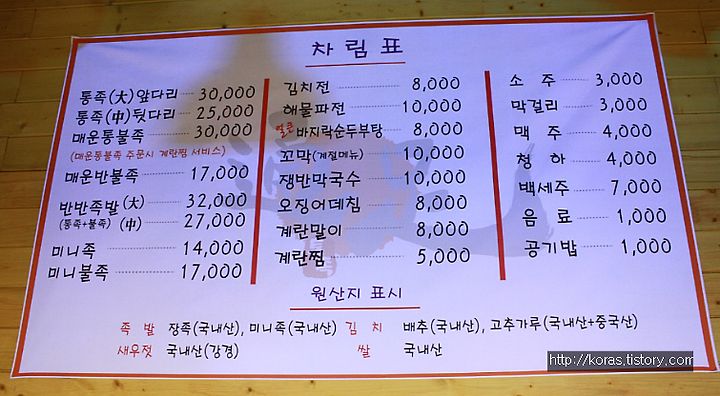 차림표
통족(大)앞다리 30,000
통족(中)뒷다리 25,000
매운통불족 30,000
(매운통불족 주문시 계란찜 서비스)
매운반불족 17,000
반반족발(大) 32,000
(통족+불족) (中) 27,000
미니족 14,000
미니불족 17,000
김치전 8,000
해물파전 10,000
얼큰 바지락순두부탕 8,000
꼬막(계절메뉴) 10,000
쟁반막국수 10,000
오징어데침 8,000
계란말이 8,000
계란찜 5,000
소주 3,000
막걸리 3,000
맥주 4,000
청하 4,000
백세주 7,000
음료 1,000
공기밥 1,000
원산지 표시
족발 장족(국내산), 미니족(국내산) 김치 배추(국내산), 고추가루(국내산+중국산)
새우젓 국내산(강경) 쌀 국내산
http://koras.tistory.com